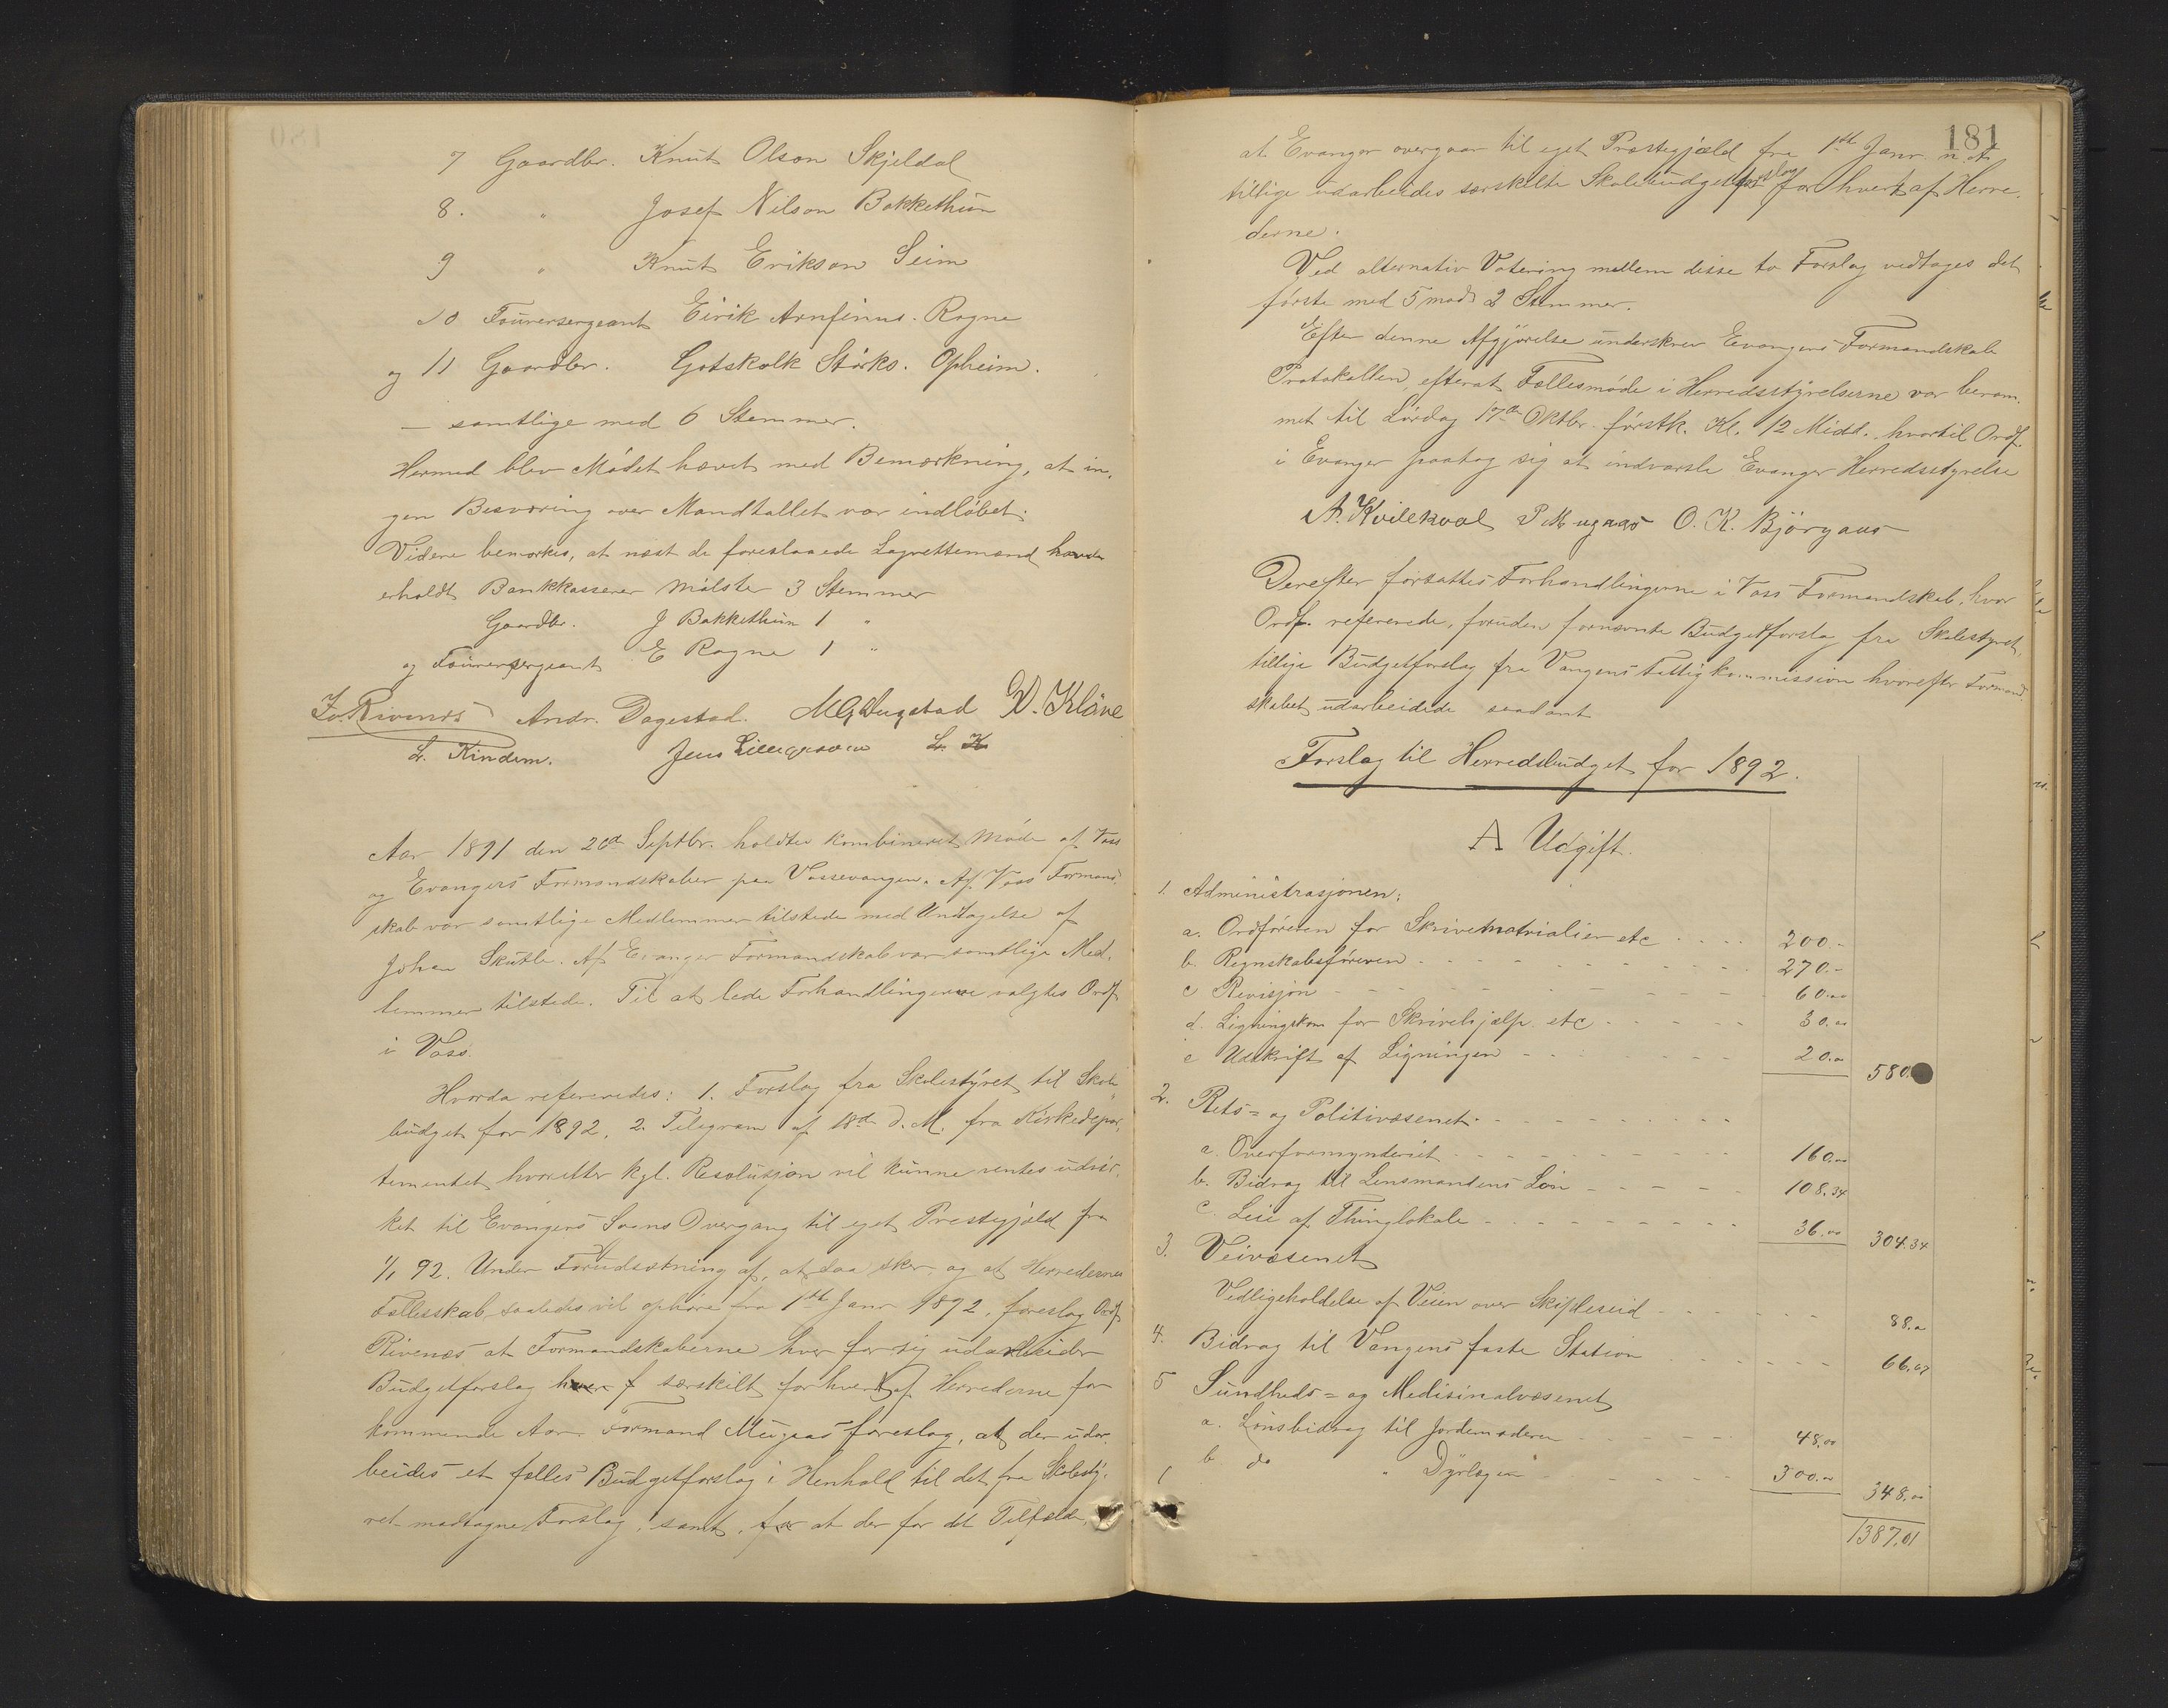 7 Gaardbr. Knut Olson Skjeldal
8. " Josef Nilson Bakkethun
9 " Knut Erikson Seim
10 Fourersergeant Eirik Arnfinns. Rogne
og 11 Gaardbr. Gotskalk Störks. Opheim.
— samtlige med 6 Stemmer.
Hermed blev Mödet hævet med Bemærkning, at in-
gen Besværing over Mandtallet var indlöbet.
Videre bemærkes, at næst de foreslaaede Lagrettemænd havde
erholdt Bankkasserer Mölster 3 Stemmer
Gaardbr. J Bakkethun 1 "
og Fourersergeant E Rogne 1 "
Iv. Rivenes Andr. Dagestad. K. Kløve
L. Kindem. Jens Lillegraven L. K
Aar 1891 den 26de Septbr. holdtes kombineret Möde af Voss
og Evangers Formandskaber paa Vossevangen. Af Voss Formand-
skab var samtlige Medlemmer tilstede med Undtagelse af
Johan Skutle. Af Evanger Formandskab var samtlige Med-
lemmer tilstede. Til at lede Forhandlingerne valgtes Ordf.
i Voss.
Hvorda refereredes: 1. Forslag fra Skolestyret til Skole-
budget for 1892, 2. Telegram af 18de d. M. fra Kirkedepar-
tementet hvorefter kgl. Resolusjon vil kunne ventes udvir-
ket til Evangers Sogns Overgang til eget Prestegjæld fra
1/1 92. Under Forudsætning af, at saa sker, og at Herredernes
Fællesskab saaledes vil ophöre fra 1ste Janr 1892, foreslog Ordf
Rivenes at Formandskaberne hver for sig udarbeider
Budgetforslag særskilt for hvert af Herrederne for
kommende Aar. Formand Mugaas foreslog, at der udar-
beides et fælles Budgetforslag i Henhold til det fra Skolesty-
ret modtagne Forslag, samt, at der for det Tilfælde,
181
at Evanger overgaar til eget Præstegjæld fra 1ste Janr. n. A.
tillige udarbeides særskilte Skolebudgetforslag for hvert af Herre-
derne.
Ved alternativ Votering mellem disse to Forslag vedtages det
förste med 5 mod 2 Stemmer.
Efter denne Afgjörelse underskrev Evangers Formandskab
Protokollen, efterat Fællesmöde i Herredsstyrelserne var beram-
met til Lördag 17de Oktbr. förstk. Kl. 12 Midd. hvortil Ordf.
i Evanger paatog sig at indvarsle Evanger Herredsstyrelse
A. Kvilekval P Mugaas O. K. Björgaas
Derefter fortsattes Forhandlingerne i Voss Formandskab, hvor
Ordf. refererede, foruden fornævnte Budgetforslag fra Skolestyret,
tillige Budgetforslag fra Vangens Fattigkommission hvorefter Formand-
skabet udarbeidede saadant
Forslag til Herredsbudget for 1892.
A Udgift.
1. Administrasjonen:
a. Ordföreren for Skrivematrialier etc 200.-
b. Regnskabsföreren 270.-
c Revisjon 60.00
d. Ligningskom for Skrivehjælp etc 30.00
e Udskrift af Ligningen 20.00 580.
2. Rets- og Politivæsenet.
a. Overformynderiet 160.00
b. Bidrag til Lensmandens Løn 108.34
c. Leie af Thinglokale 36.00 304.34
3. Veivæsenet
Vedligeholdelse af Veien over Skipleseid 88.00
4. Bidrag til Vangens faste Station 66.67
5 Sundheds- og Medisinalvæsenet
a. Lønsbidrag til Jordemoderen 48.00
b. do " Dyrlægen 300.00 348.00
1387.01